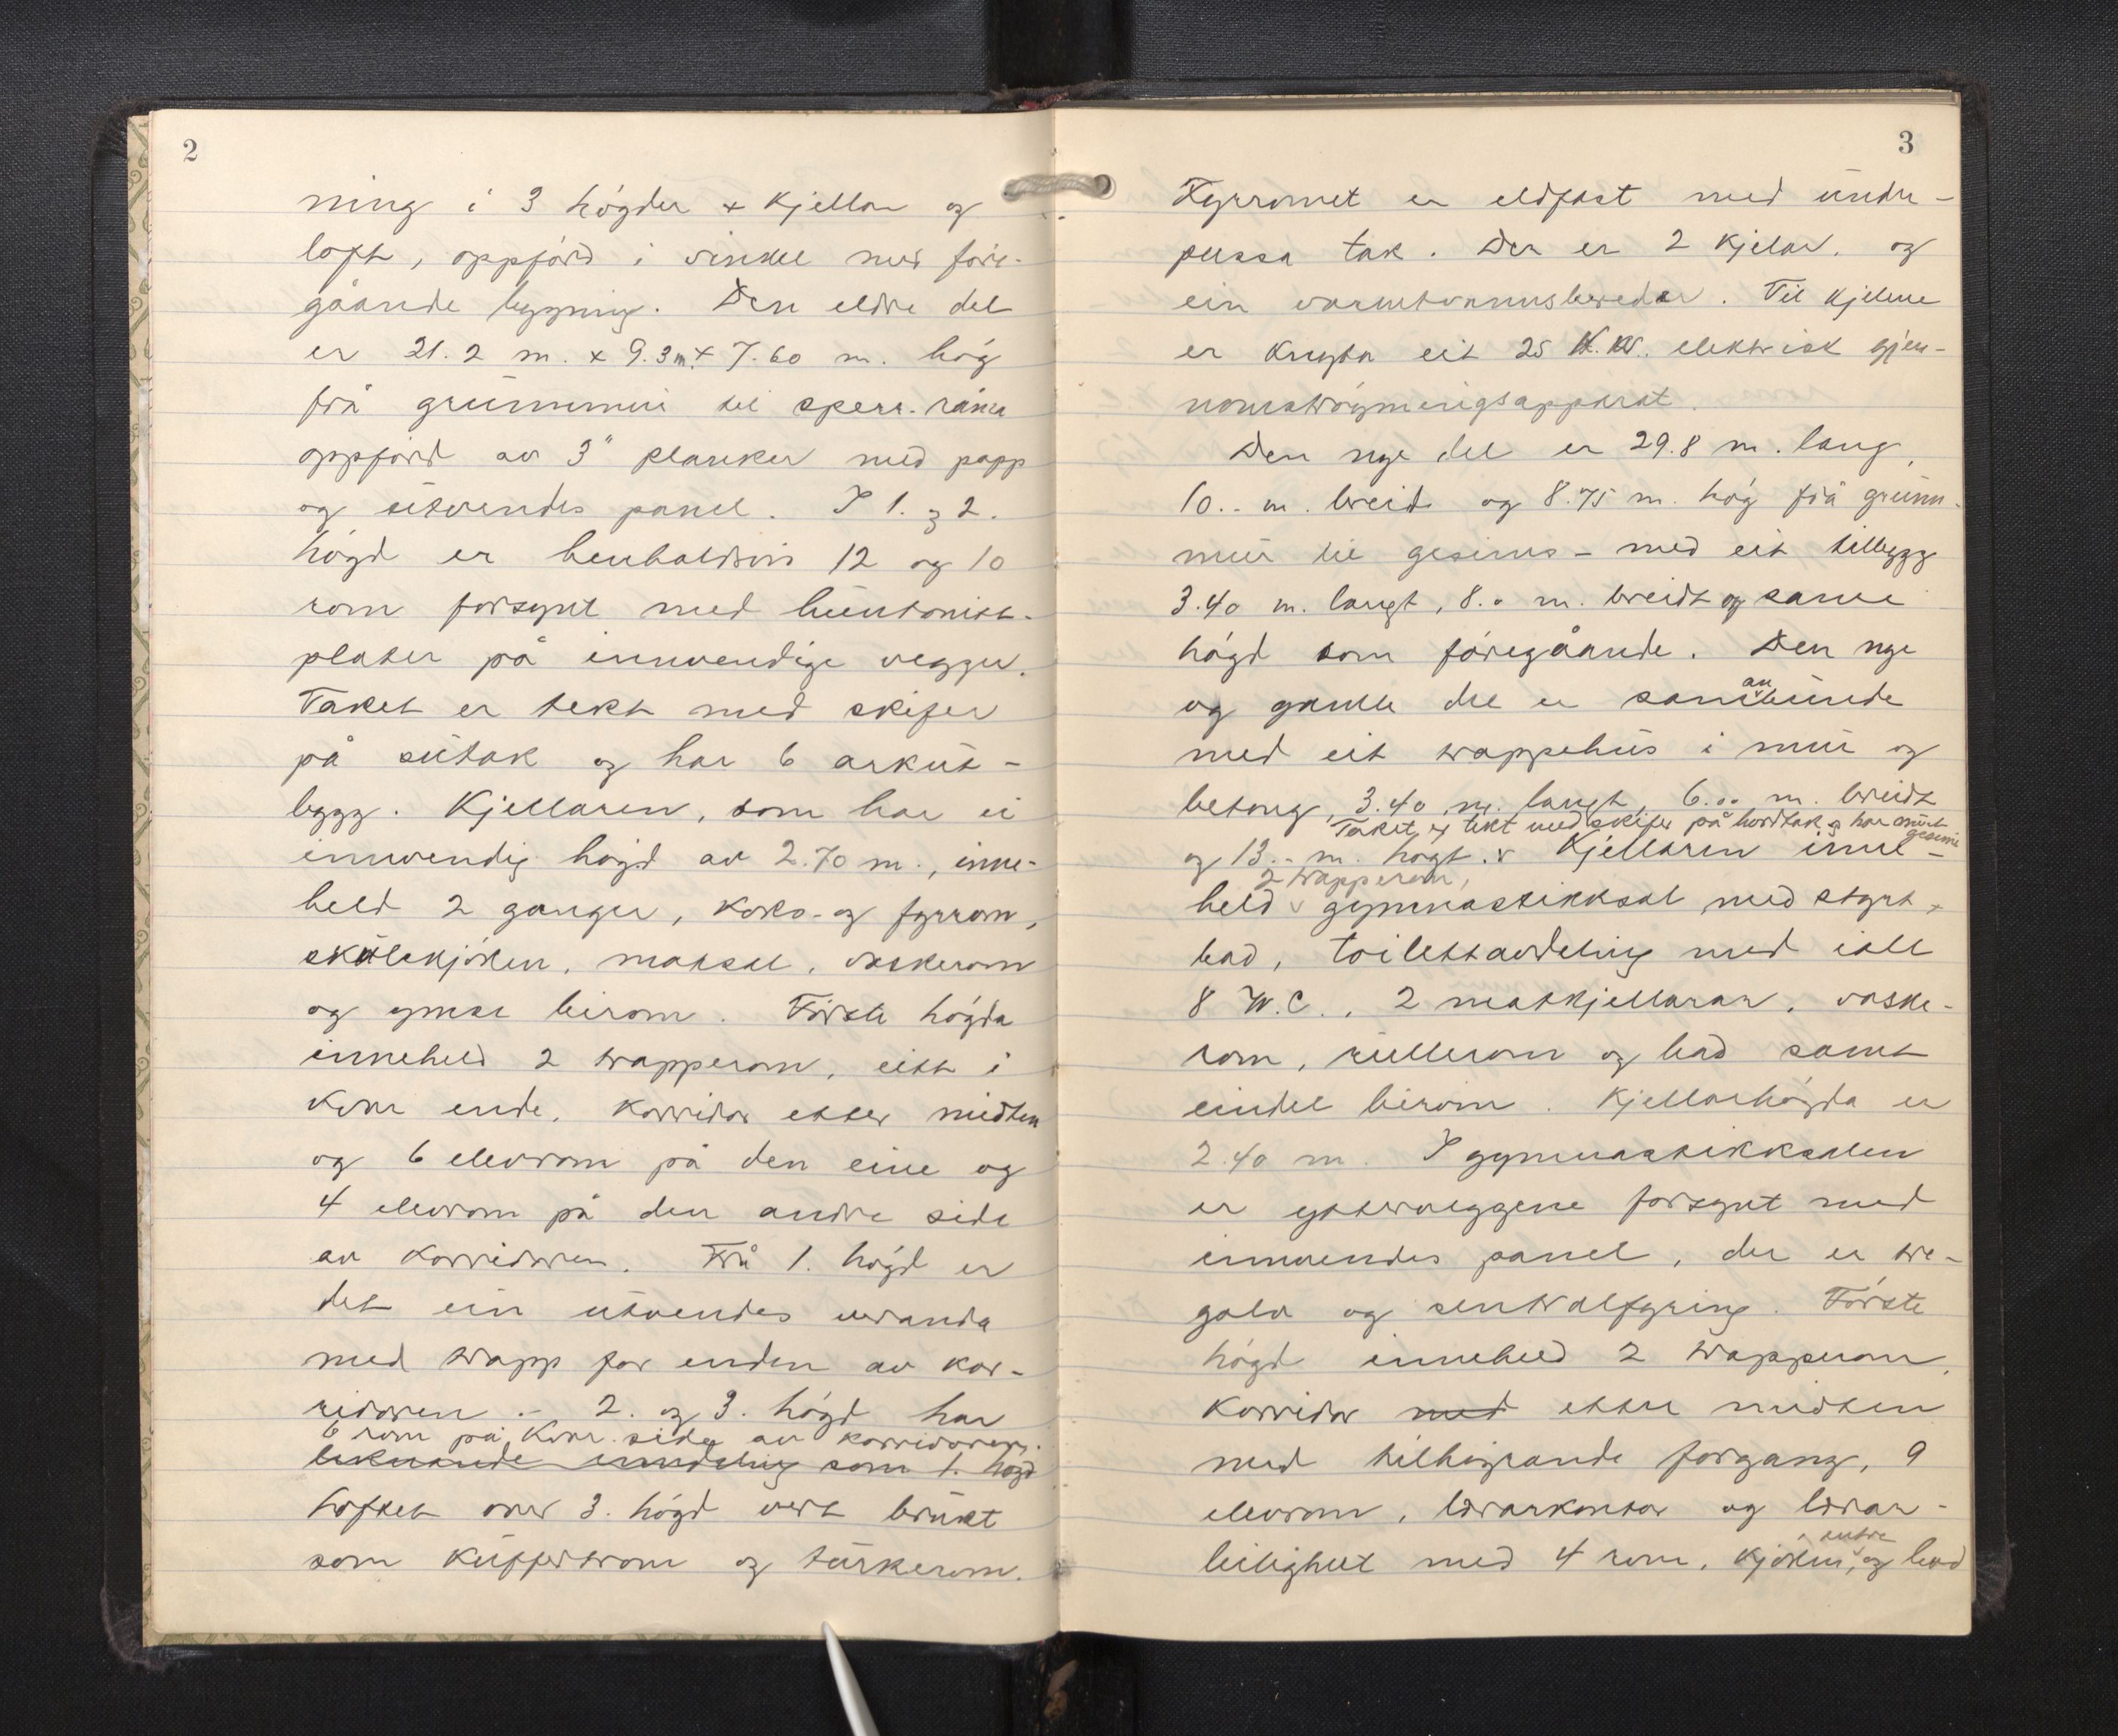 2
ning i 3 högder + Kjellar og
loft, oppförd i vinkel med före-
gåande bygning. Den eldre del
er 21.2 m. x 9.3 m. x 7.60 m. hög
frå grunnmur til sperr-råma
oppförd av 3" planker med papp
og utvendes panel. I 1. og 2.
högd er henholdsvis 12 og 10
rom forsynt med huntonitt-
plater på innvendige vegger.
Taket er tekt med skifer
på sutak og har 6 arkut-
bygg. Kjellaren, som har ei
innvendig högd av 2.70 m., inne-
held 2 ganger, koks- og fyrrom,
skulekjöken, matsal, vaskerom
og ymse birom. Förste högda
inneheld 2 trapperom, eitt i
kvar ende, korridor etter midten
og 6 elevrom på den eine og
4 elevrom på den andre side
av korridoren. Frå 1. högd er
det ein utvendes veranda
med trapp for enden av kor-
ridoren. - 2. og 3. högd har
6 rom på kvar side av korridoren.
liknande inndeling som 1. högd
Loftet over 3. högd vert brukt
som kuffertrom og turkerom.
3
Fyrromet er eldfast med under-
pussa tak. Der er 2 kjelar. og
ein varmtvannsbereder. Til kjelene
er knyta eit 25 K.W. elektrisk gjen-
nomströymingsapparat.
Den nye del er 29.8 m. lang,
10.- m. breid og 8.75 m. hög frå grunn-
mur til gesims - med eit tillegg
3.40 m. langt, 8.0 m. breidt og same
högd som föregåande. Den nye
og gamle del er samanbunde
med eit trappehus i mur og
betong, 3.40 m. langt, 6.00 m. breidt
Taket er tekt med skifer på bordtak og har
og 13.- m. högt. v Kjellaren inne-
2 trapperom,
held v gymnastikksal med styrt-
bad, toilettavdeling med ialt
8 W.C., 2 matkjellarar, vaske-
rom, rullerom og bad samt
eindel birom. Kjellarhögda er
2.40 m. I gymnastikksalen
er ytterveggene forsynt med
innvendes panel, der er tre-
golv og sentralfyring. Förste
högd inneheld 2 trapperom,
korridor med etter midten
med tilhöyrande forgang, 9
elevrom, lærarkontor og lærar-
entre
leilighet med 4 rom, kjöken, og bad